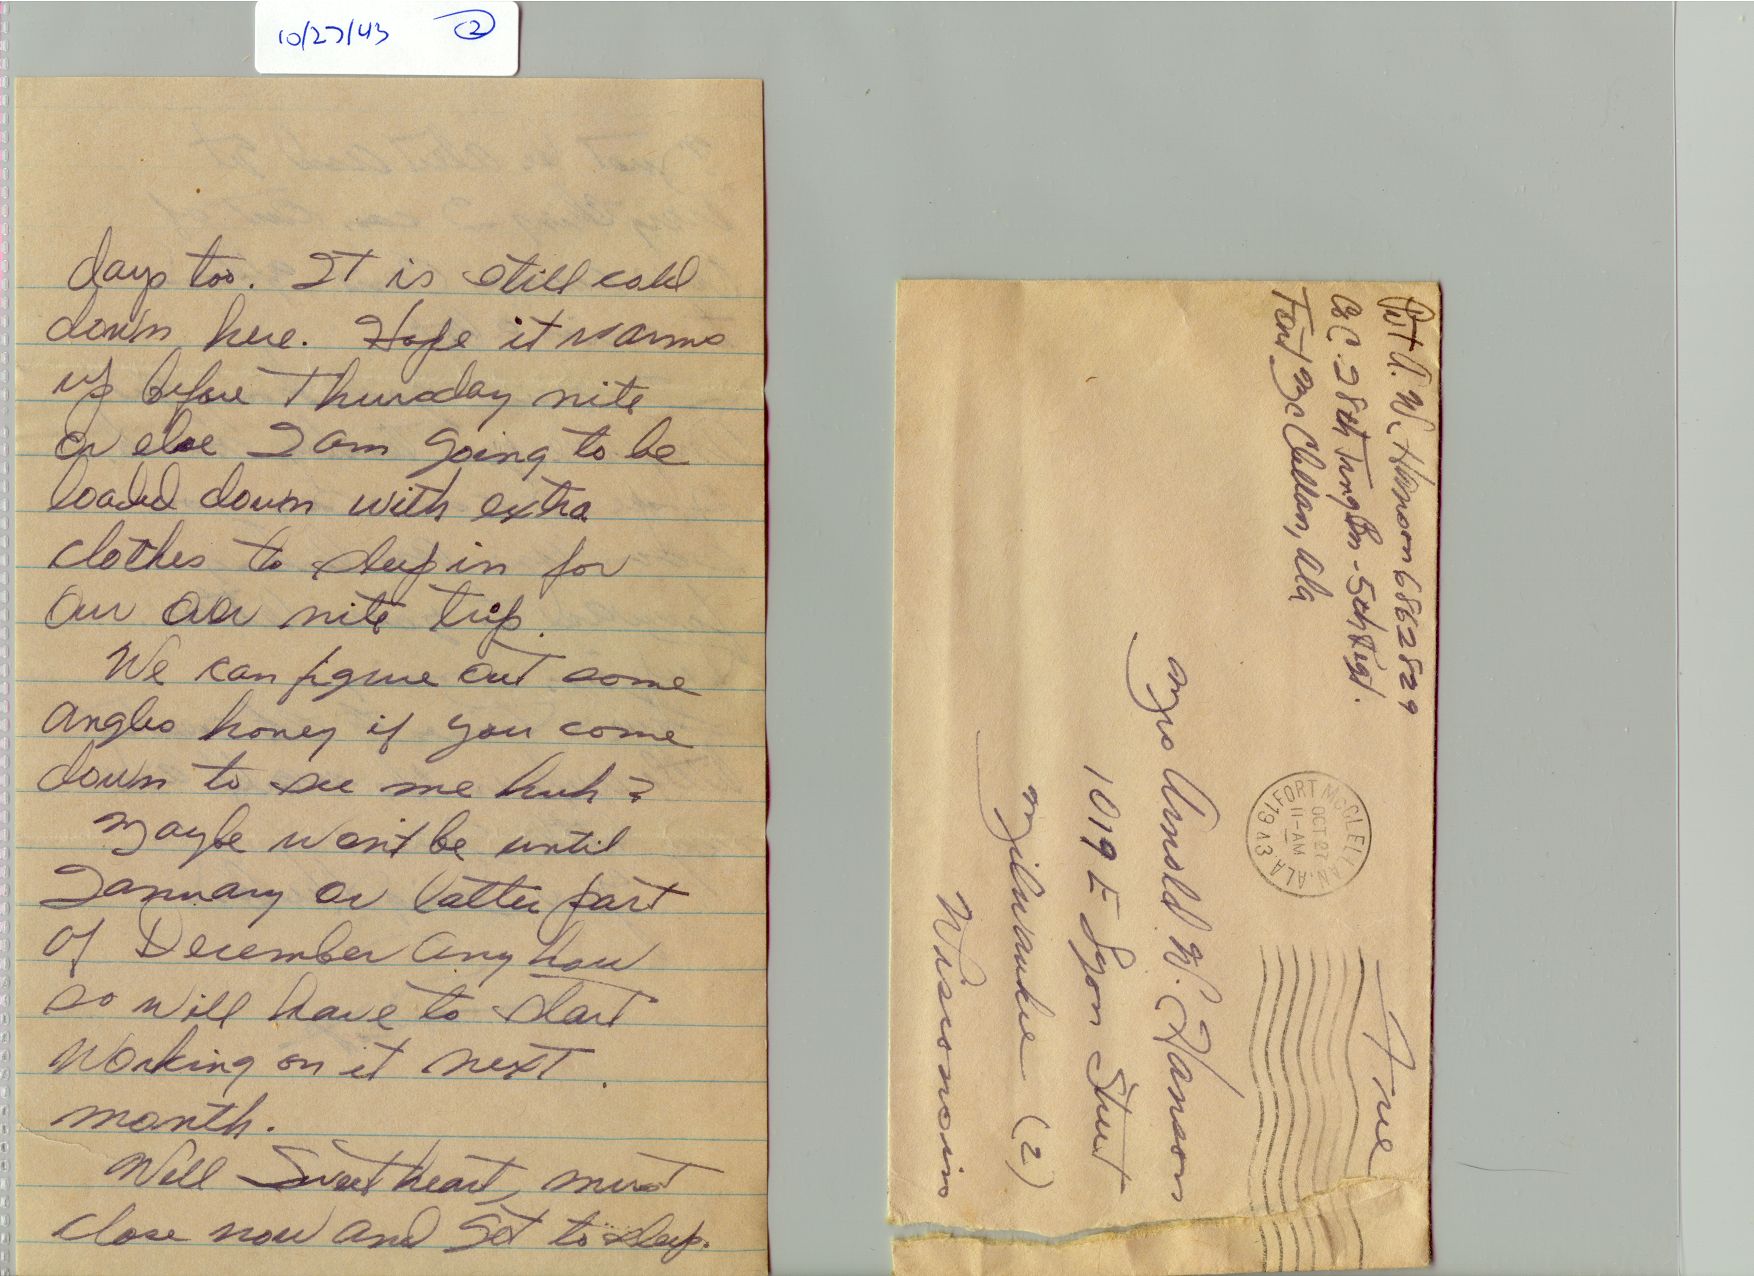 10/27/43 2
days too. It is still cold
down here. Hope it warms
up before Thursday nite
or else I am going to be
loaded down with extra
clothes to sleep in for
our over nite trip.
We can figure out some
angles honey if you come
down to see me huh?
Maybe won't be until
January or latter part
of December any how
so will have to start
working on it next
month.
Well Sweetheart, must
close now and get to sleep.
Pvt A. W. Hanson 6862829
Co C - 28th Tng Bn - 5th Regt.
Fort McClellan, Ala
Free
FORT McCLELLAN, ALA.
OCT 27
11-AM
1943
Mrs Arnold W. Hanson
1019 E Lyon Street
Milwaukee (2)
Wisconsin